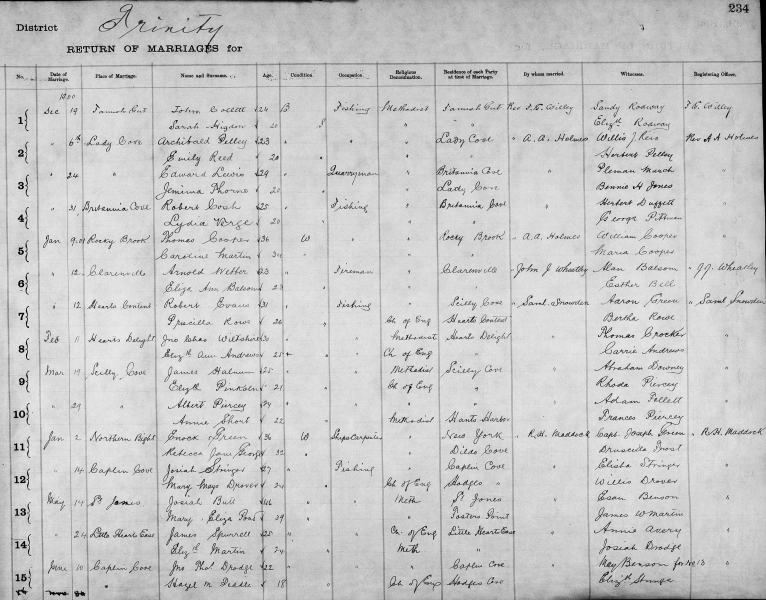 234
District Trinity
RETURN OF MARRIAGES for
No. Date of Marriage. Place of Marriage. Name and Surname. Age. Condition. Occupation. Religious Denomination. Residence of each Party at time of Marriage. By whom married. Witnesses. Registering Officer.
1 Dec 19 John Collett 24 B Fishing Methodist Rev Sandy Rodway
Sarah 20 S " " Elizth Rodway
2 " 6th Lady Cove Archibald Pelley 23 " " " Lady Cove " A. A. Holmes Willis J. Rev A A Holmes
Emily Reed 20 " " " Herbert Pelley
3 " 24 " Edward Lewis 29 " Quarryman " Britannia Cove " Pleman March "
Jemima Thorne 20 " " Lady Cove Bennie H Jones
4 " 31 Britannia Cove Robert 25 " Fishing " Britannia Cove " Herbert Duffett "
Lydia Verge 20 " " " George Pittman
5 Jan 9.01 Rocky Brook Thomas Cooper 36 W " " Rocky Brook " A. A. Holmes William Cooper "
Caroline Martin " " " Maria Cooper
6 " 12 Clarenville Arnold 23 " Fireman " Clarenville " John J Wheatley Alan Balsom " J.J. Wheatley
Eliza Ann Balsom 23 " " " Esther Bell
7 " 12 Hearts Content Robert Evans 31 " Fishing " Scilly Cove " Saml. Snowden Aaron Green " Saml Snowden
Priscilla Rowe 26 " " Ch of Eng Hearts Content Bertha Rowe
8 Feb 11 Hearts Delight Jno Chas Wiltshire 30 " " Methodist Hearts Delight " Thomas Crocker "
Elizth Ann Andrews 25 " Ch of Eng " Carrie Andrews
9 Mar 19 Scilly Cove James 25 " " Methodist Scilly Cove " Abraham Downey "
Elizth 21 " Ch of Eng " Rhoda Piercey
10 " 29 " Albert Piercey 24 " " " " " Adam Pellett "
Annie Short 22 " Methodist Hants Harbor Frances Piercey
11 Jan 2 Northern Bight Enock Green 36 W Ships Carpenter " New York " R. H. Maddock Capt. Joseph Green " R. H. Maddock
Rebecca Jane 32 " " Dildo Cove Drusella Frost
12 " 14 Caplin Cove Josiah Stringer 27 " Fishing " Caplin Cove " Elisha Stringer "
Mary Drover 24 " Ch of Eng Hodges " Willis Drover
13 May 14 St Jones Josiah Butt " " Meth St Jones " Esau Benson "
Mary Eliza 39 " " Fosters Point James W Martin
14 " 24 Little Hearts Ease James Spurrell 25 " " Ch. of Eng Little Hearts Ease " Annie Avery "
Elizth Martin 24 " Meth " Josiah Drodge
15 June 10 Caplin Cove Jno Thos Drodge 22 " " " Caplin Cove " May Benson for No 13 "
Hazel M Peddle 18 " Ch of Eng Hodges Cove Elizth Stringer